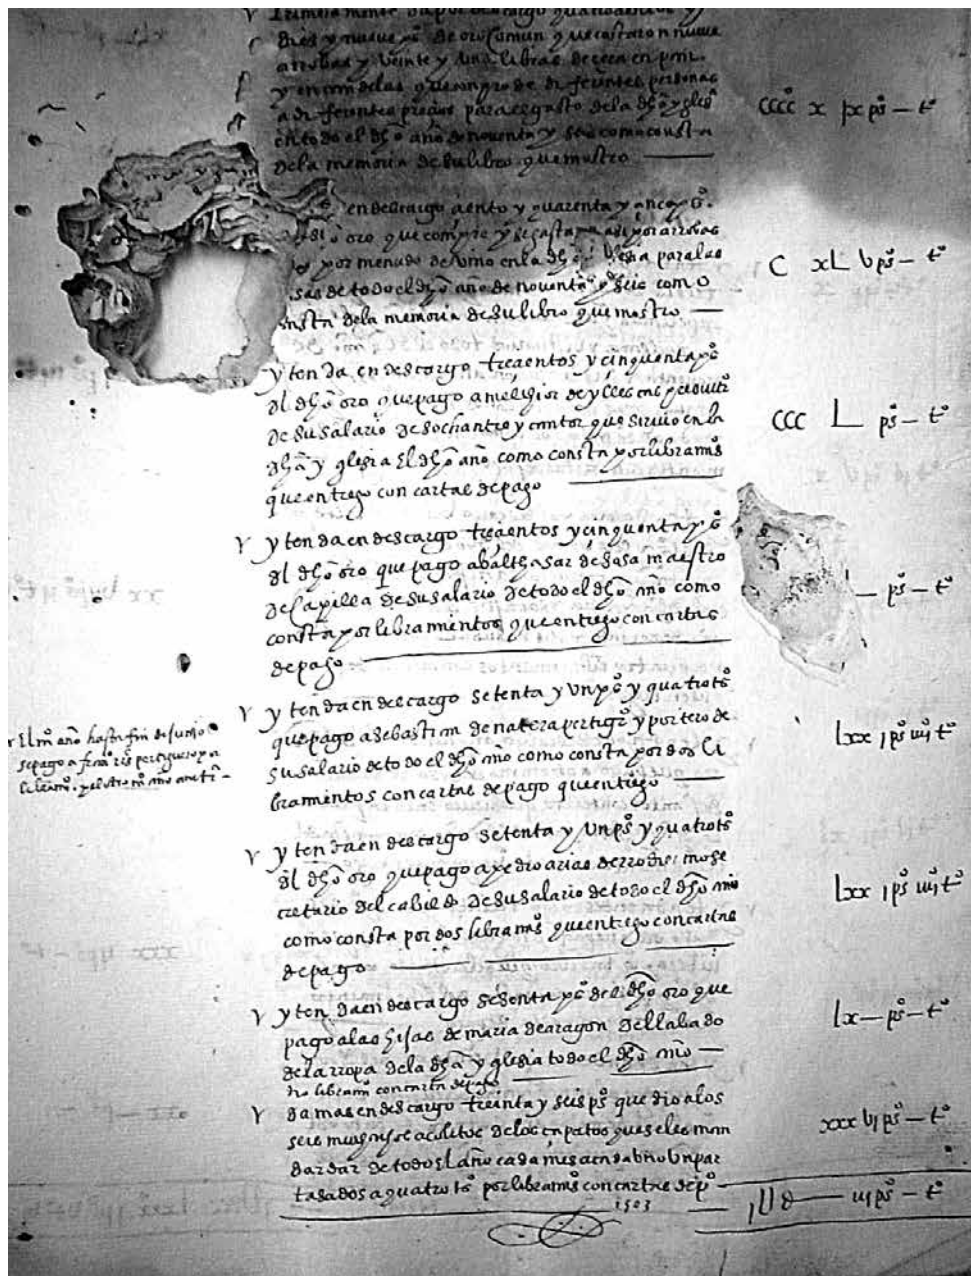 Primeramente da por descargo quatrocientos y
diez y nueve pºs de oro comun que costaron nueve
arrobas y veinte y una libras de cera en pan
y en candelas que compro de diferentes personas
a diferentes precios para el gasto de la dhã yglesª
en todo el dhõ año de noventa y seis como consta
de la memoria de su libro que mostro
cccc x ix pºs — tº
en descargo ciento y quarenta y cinco pºs
oro que compro y se gasta por arrobas
por menudo de vino en la dhã yglesia para las
sas de todo el dhõ año de noventa y seis como
consta de la memoria de su libro que mostro
C xL v pºs — tº
yten da en descargo trecientos y cinquenta pºs
del dhõ oro que pago a melchior de yllescas
de su salario de sochantre y cantor que sirvio en la
dhã yglesia El dhõ año como consta por libramiºs
que entrego con cartas de pago
ccc L pºs — tº
yten da en descargo trecientos y cinquenta pºs
del dhõ oro que pago a balthasar de sosa maestro
de Capilla de su salario de todo el dhõ año como
consta por libramientos que entrego con cartas
de pago
— pºs — tº
yten da en descargo setenta y un pºs y quatro tºs
que pago a sebastian de natera pertiguº y portero de
su salario de todo el dhõ año como consta por dos li
bramientos con cartas de pago que entrego
lxx i pºs iiii tº
El mº año hasta fin de junio
se pago a pertiguero
yten da en descargo setenta y un pºs y quatro tºs
del dhõ oro que pago a pedro arias de rrodrimo se
cretario del cabildo de su salario de todo el dhõ año
como consta por dos libramºs que entrego con cartas
de pago
lxx i pºs iiii tº
yten da en descargo sesenta pºs del dhõ oro que
pago a las hijas de maria de aragon del labado
de la rropa de la dhã yglesia todo el dhõ año
libramº con carta de pago
lx — pºs — tº
da mas en descargo treinta y seis pºs que dio a los
seis muchachos acolitos de los çapatos que se les man
dan dar de todo el año cada mes a cada uno un par
tasados a quatro tºs por libramºs con cartas de pº
xxx vi pºs — tº
1503
iii pºs — tº